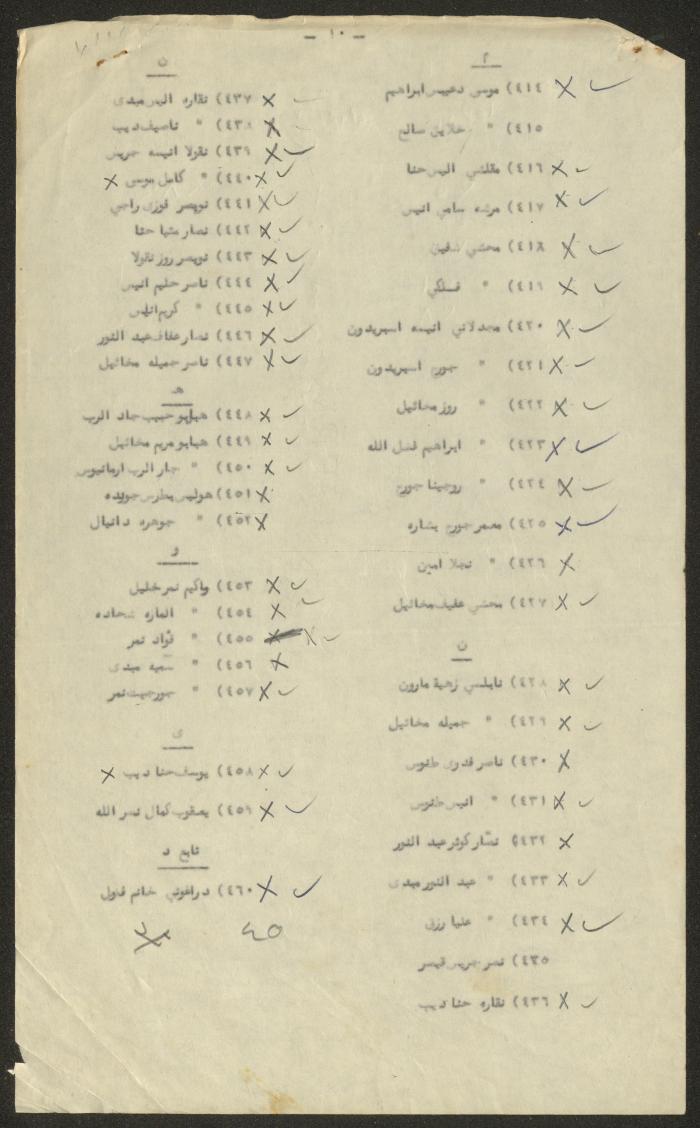 - ١٠ -
م
٤١٤) موسى دعيبس ابراهيم
٤١٥) " خلايق سالم
٤١٦) مقلشي اليس حنا
٤١٧) مرشه سامي انيس
٤١٨) محشي شفيق
٤١٩) "
٤٢٠) مجدلاني انيسه اسبريدون
٤٢١) " جورج اسبريدون
٤٢٢) " روز مخائيل
٤٢٣) " ابراهيم فضل الله
٤٢٤) " روجينا جورج
٤٢٥) معمر جورج بشاره
٤٢٦) " نجلا امين
٤٢٧) محشي عفيف مخائيل
ن
٤٢٨) نابلسي زهية مارون
٤٢٩) " جميله مخائيل
٤٣٠) ناصر قدوى طنوس
٤٣١) " انيس طنوس
٤٣٢) نصّار كوثر عبد النور
٤٣٣) " عبد النور مبدى
٤٣٤) " عليا رزق
٤٣٥) نمر جريس قيصر
٤٣٦) نقاره حنا ديب
ن
٤٣٧) نقاره اليس مبدى
٤٣٨) " ناصيف ديب
٤٣٩) نقولا انيسه جريس
٤٤٠) " كامل موسى
٤٤١) نويصر فوزى راجي
٤٤٢) نصار متيا حنا
٤٤٣) نويصر روز نقولا
٤٤٤) ناصر حليم انيس
٤٤٥) " كريم انيس
٤٤٦) نصار عفاف عبد النور
٤٤٧) ناصر جميله مخائيل
هـ
٤٤٨) حبيب جاد الرب
٤٤٩) مريم مخائيل
٤٥٠) " جار الرب ارمانيوس
٤٥١) هوليس بطرس جويده
٤٥٢) " جوهره دانيال
و
٤٥٣) واكيم نمر خليل
٤٥٤) " الماره شحاده
٤٥٥) " فؤاد نمر
٤٥٦) " سميه مبدى
٤٥٧) " جورجيت نمر
ى
٤٥٨) يوسف حنا ديب
٤٥٩) يعقوب كمال نصر الله
تابع د
٤٦٠) دراغوني خانم
٤٥